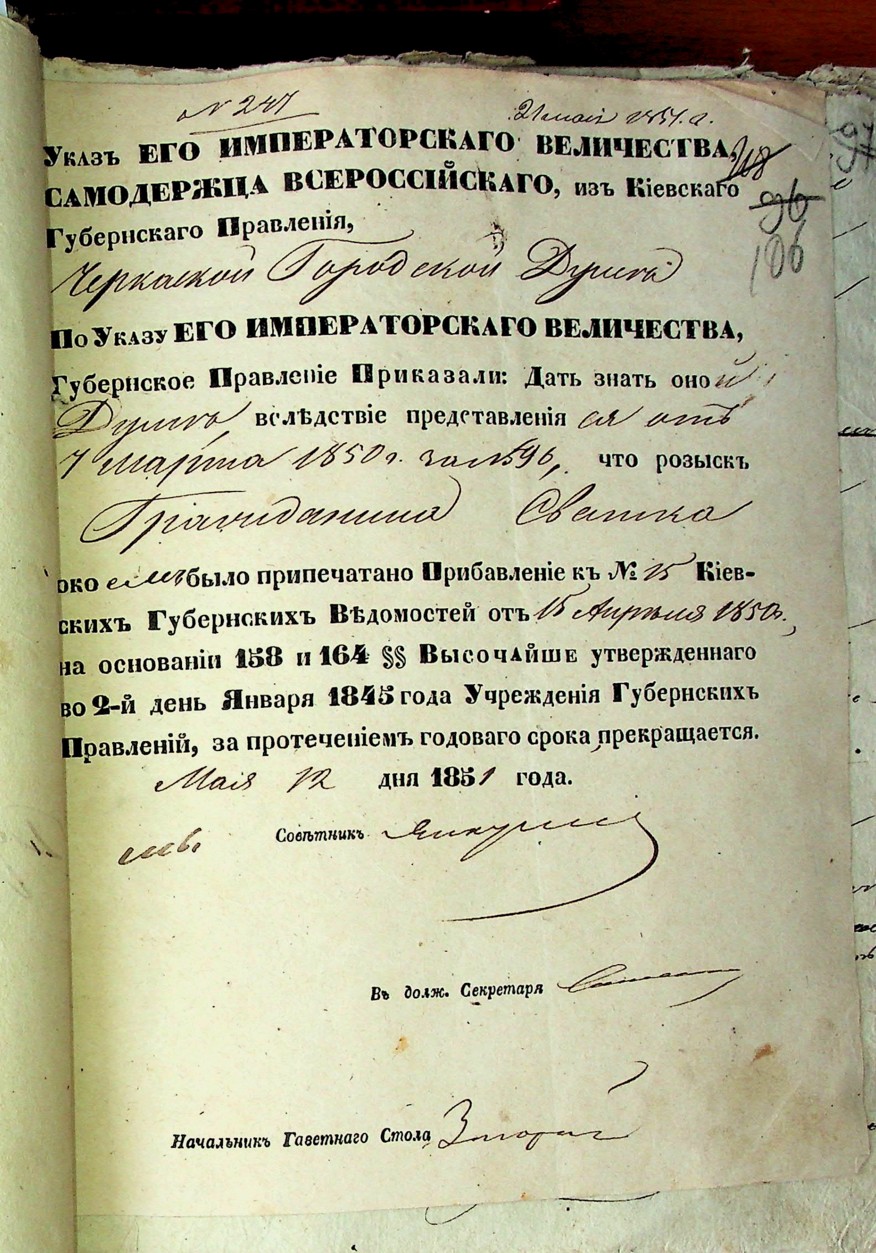 № 247 21 мая 1851. г.
Указъ ЕГО ИМПЕРАТОРСКАГО ВЕЛИЧЕСТВА, 118
САМОДЕРЖЦА ВСЕРОССІЙСКАГО, изъ Кіевскаго 96
Губернскаго Правленія, 106
Черкаской Городской Думѣ
По Указу ЕГО ИМПЕРАТОРСКАГО ВЕЛИЧЕСТВА,
Губернское Правленіе Приказали: Дать знать оной
Думѣ, вслѣдствіе представленія ея отъ
7 Марта 1850 г. за № 596, что розыскъ
Гражданина Сватка
око было припечатано Прибавленіе къ № 15 Кіев-
скихъ Губернскихъ Вѣдомостей отъ 15 Апрѣля 1850 г.,
на основаніи 158 и 164 §§ Высочайше утвержденнаго
во 2-й день Января 1845 года Учрежденія Губернскихъ
Правленій, за протеченіемъ годоваго срока прекращается.
Мая 12 дня 1851 года.
Совѣтникъ
В҄ъ долж. Секретаря
Начальникъ Газетнаго Стола